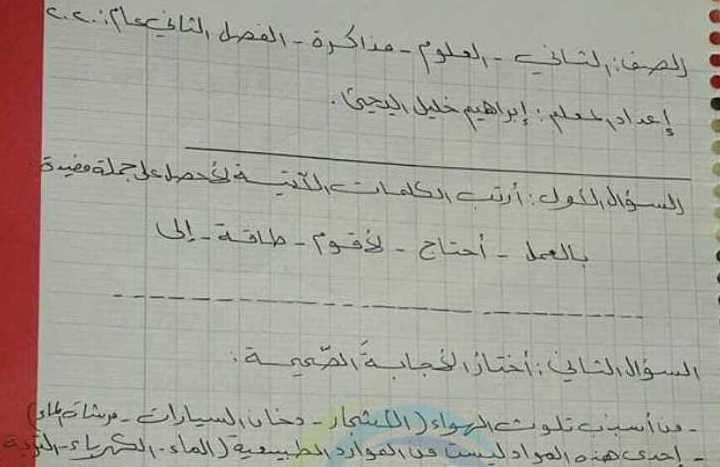 الصف: الثاني - العلوم - مذاكرة - الفصل الثاني عام: ٢٠٢٠
إعداد المعلم: إبراهيم خليل اليحيى.
السؤال الأول: أرتب الكلمات الآتية لأحصل على جملة مفيدة:
بالعمل - أحتاج - لأقوم - طاقة - إلى
السؤال الثاني: أختار الإجابة الصحيحة:
- من أسباب تلوث الهواء (الأشجار - دخان السيارات - مرشات الماء)
- إحدى هذه المواد ليست من الموارد الطبيعية (الماء - الكهرباء - التربة